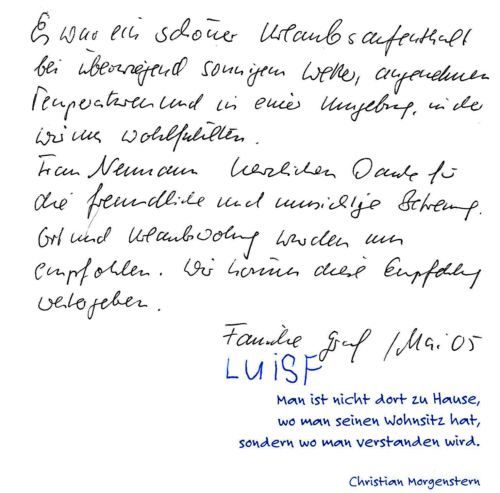 Es war ein schöner Urlaubsaufenthalt
bei überwiegend sonnigem Wetter, angenehmen
Temperaturen und in einer Umgebung, in der
wir uns wohlfühlten.
Frau Neumann herzlichen Dank für
die freundliche und umsichtige Betreuung.
Ort und Urlaubswohnung wurden uns
empfohlen. Wir können diese Empfehlung
weitergeben.
Familie Graf / Mai 05
LUISE
Man ist nicht dort zu Hause,
wo man seinen Wohnsitz hat,
sondern wo man verstanden wird.
Christian Morgenstern